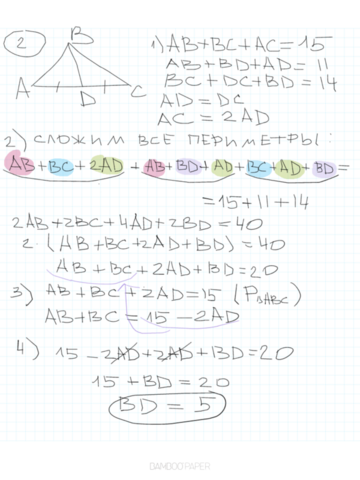 2
B
A D C
1) AB+BC+AC=15
AB+BD+AD=11
BC+DC+BD=14
AD=DC
AC=2AD
2) СЛОЖИМ ВСЕ ПЕРИМЕТРЫ:
AB+BC+2AD+AB+BD+AD+BC+AD+BD=
=15+11+14
2AB+2BC+4AD+2BD=40
2·(AB+BC+2AD+BD)=40
AB+BC+2AD+BD=20
3) AB+BC+2AD=15 (PΔABC)
AB+BC=15-2AD
4) 15-2AD+2AD+BD=20
15+BD=20
BD=5
PAPER